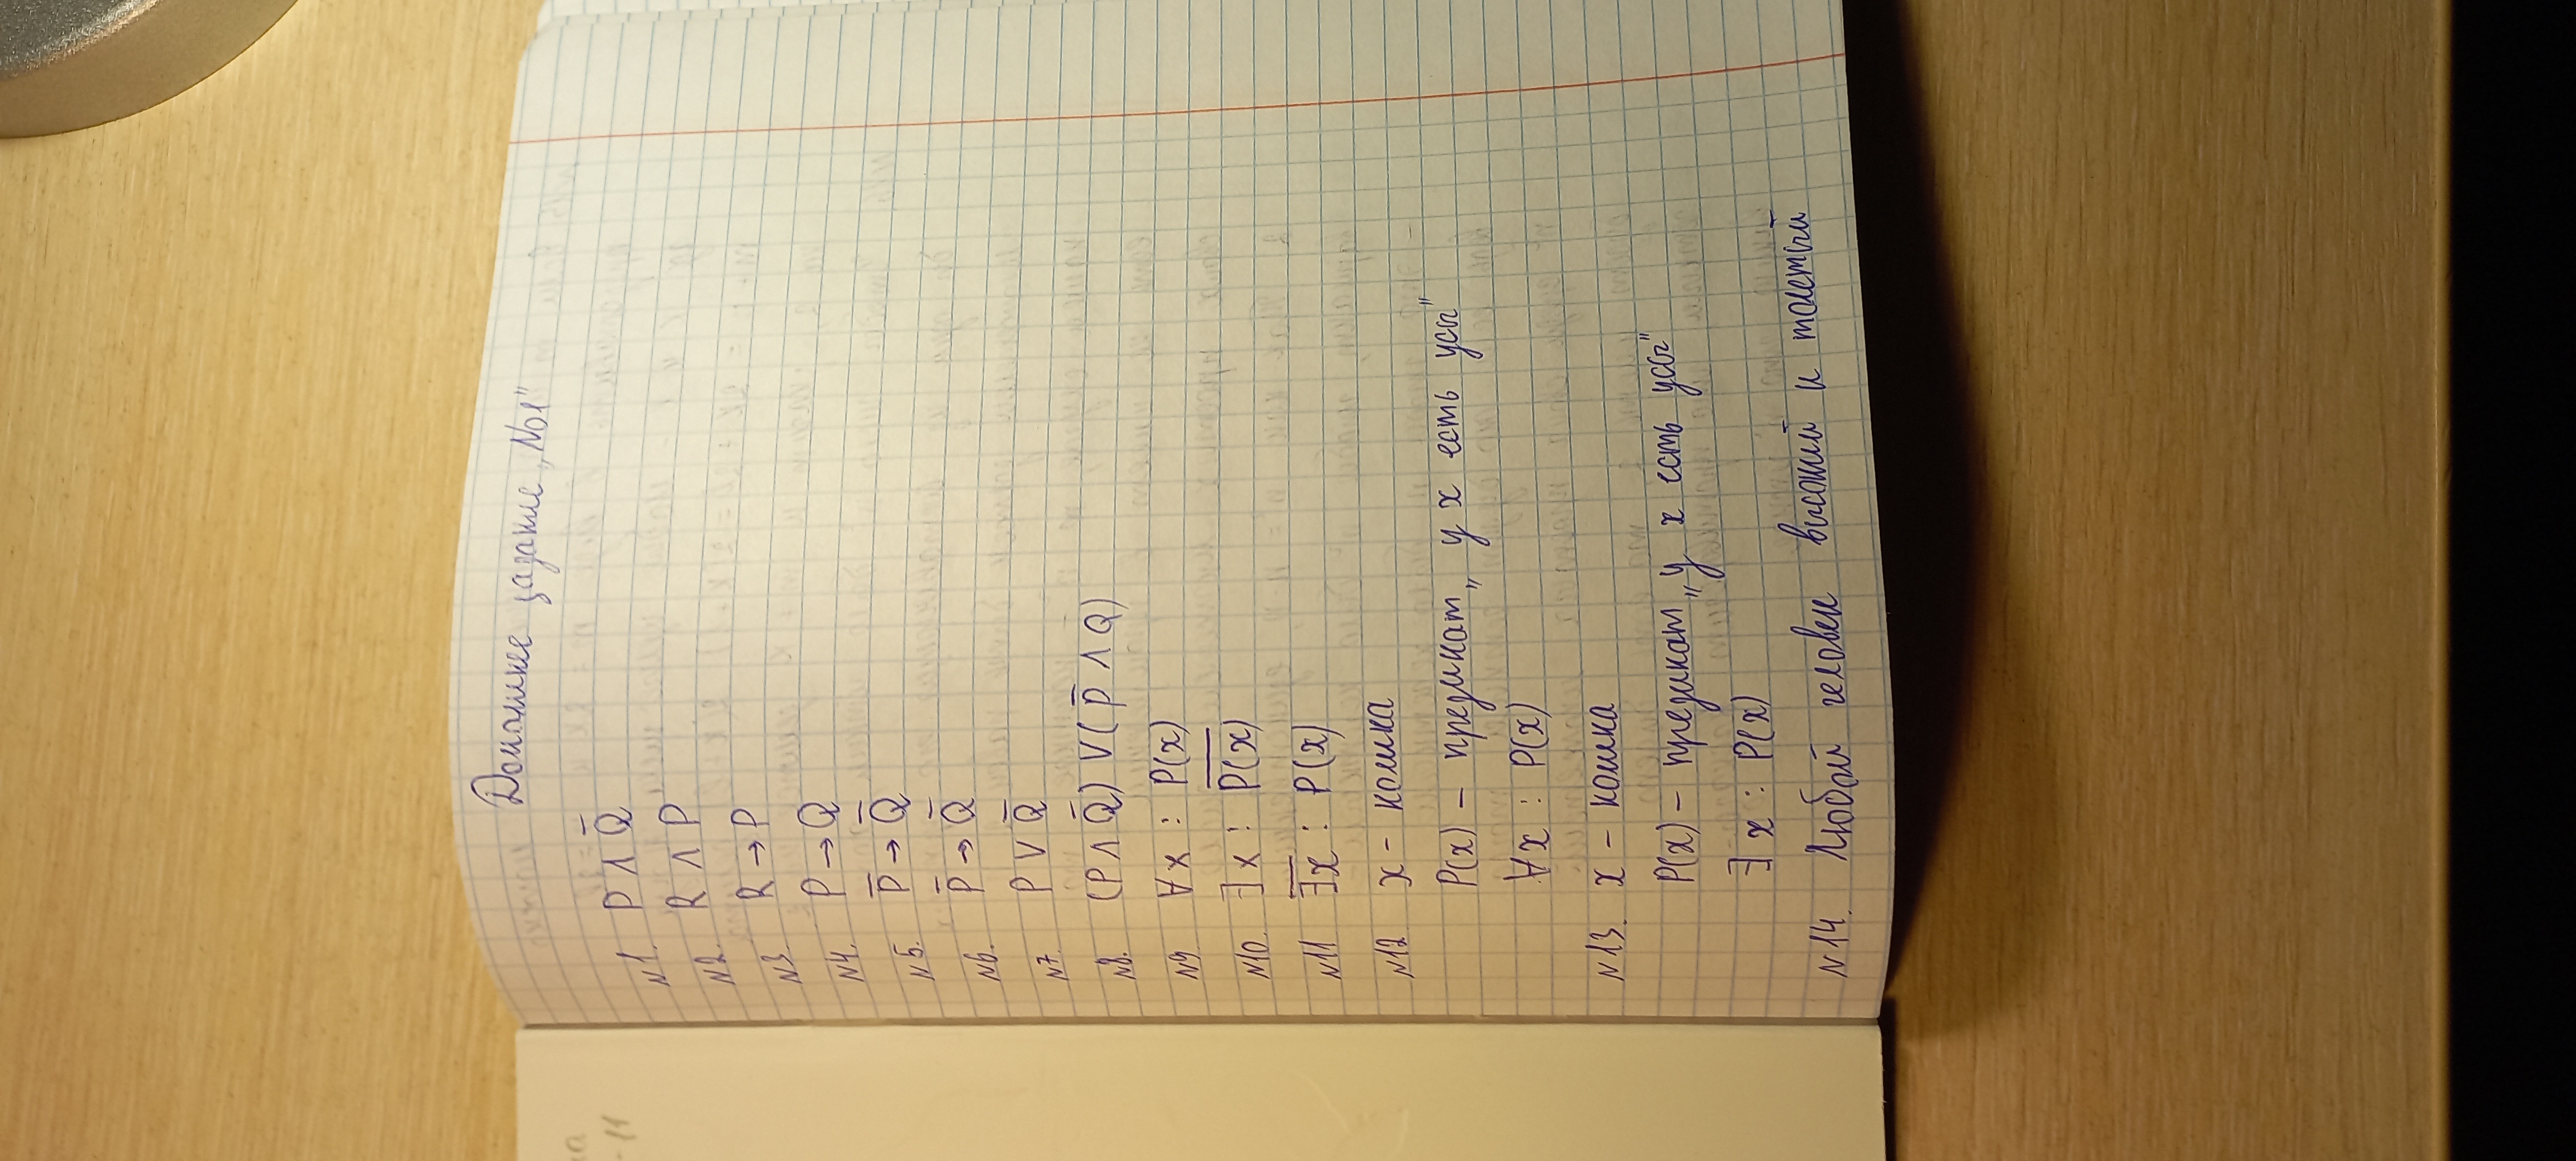 Домашнее задание „№1"
№1. P ∧ Q̅
№2. R ∧ P
№3. R → P
№4. P → Q
№5. P̅ → Q̅
№6. P̅ → Q̅
№7. P ∨ Q̅
№8. (P ∧ Q̅) ∨ (P̅ ∧ Q)
№9 ∀x : P(x)
№10. ∃x : P̅(̅x̅)̅
№11 ∃̅x̅ : P(x)
№12 x – кошка
P(x) – предикат „у x есть усы"
∀x : P(x)
№13. x – кошка
P(x) – предикат „у x есть усы"
∃x : P(x)
№14. Любой человек высокий и толстый
-11